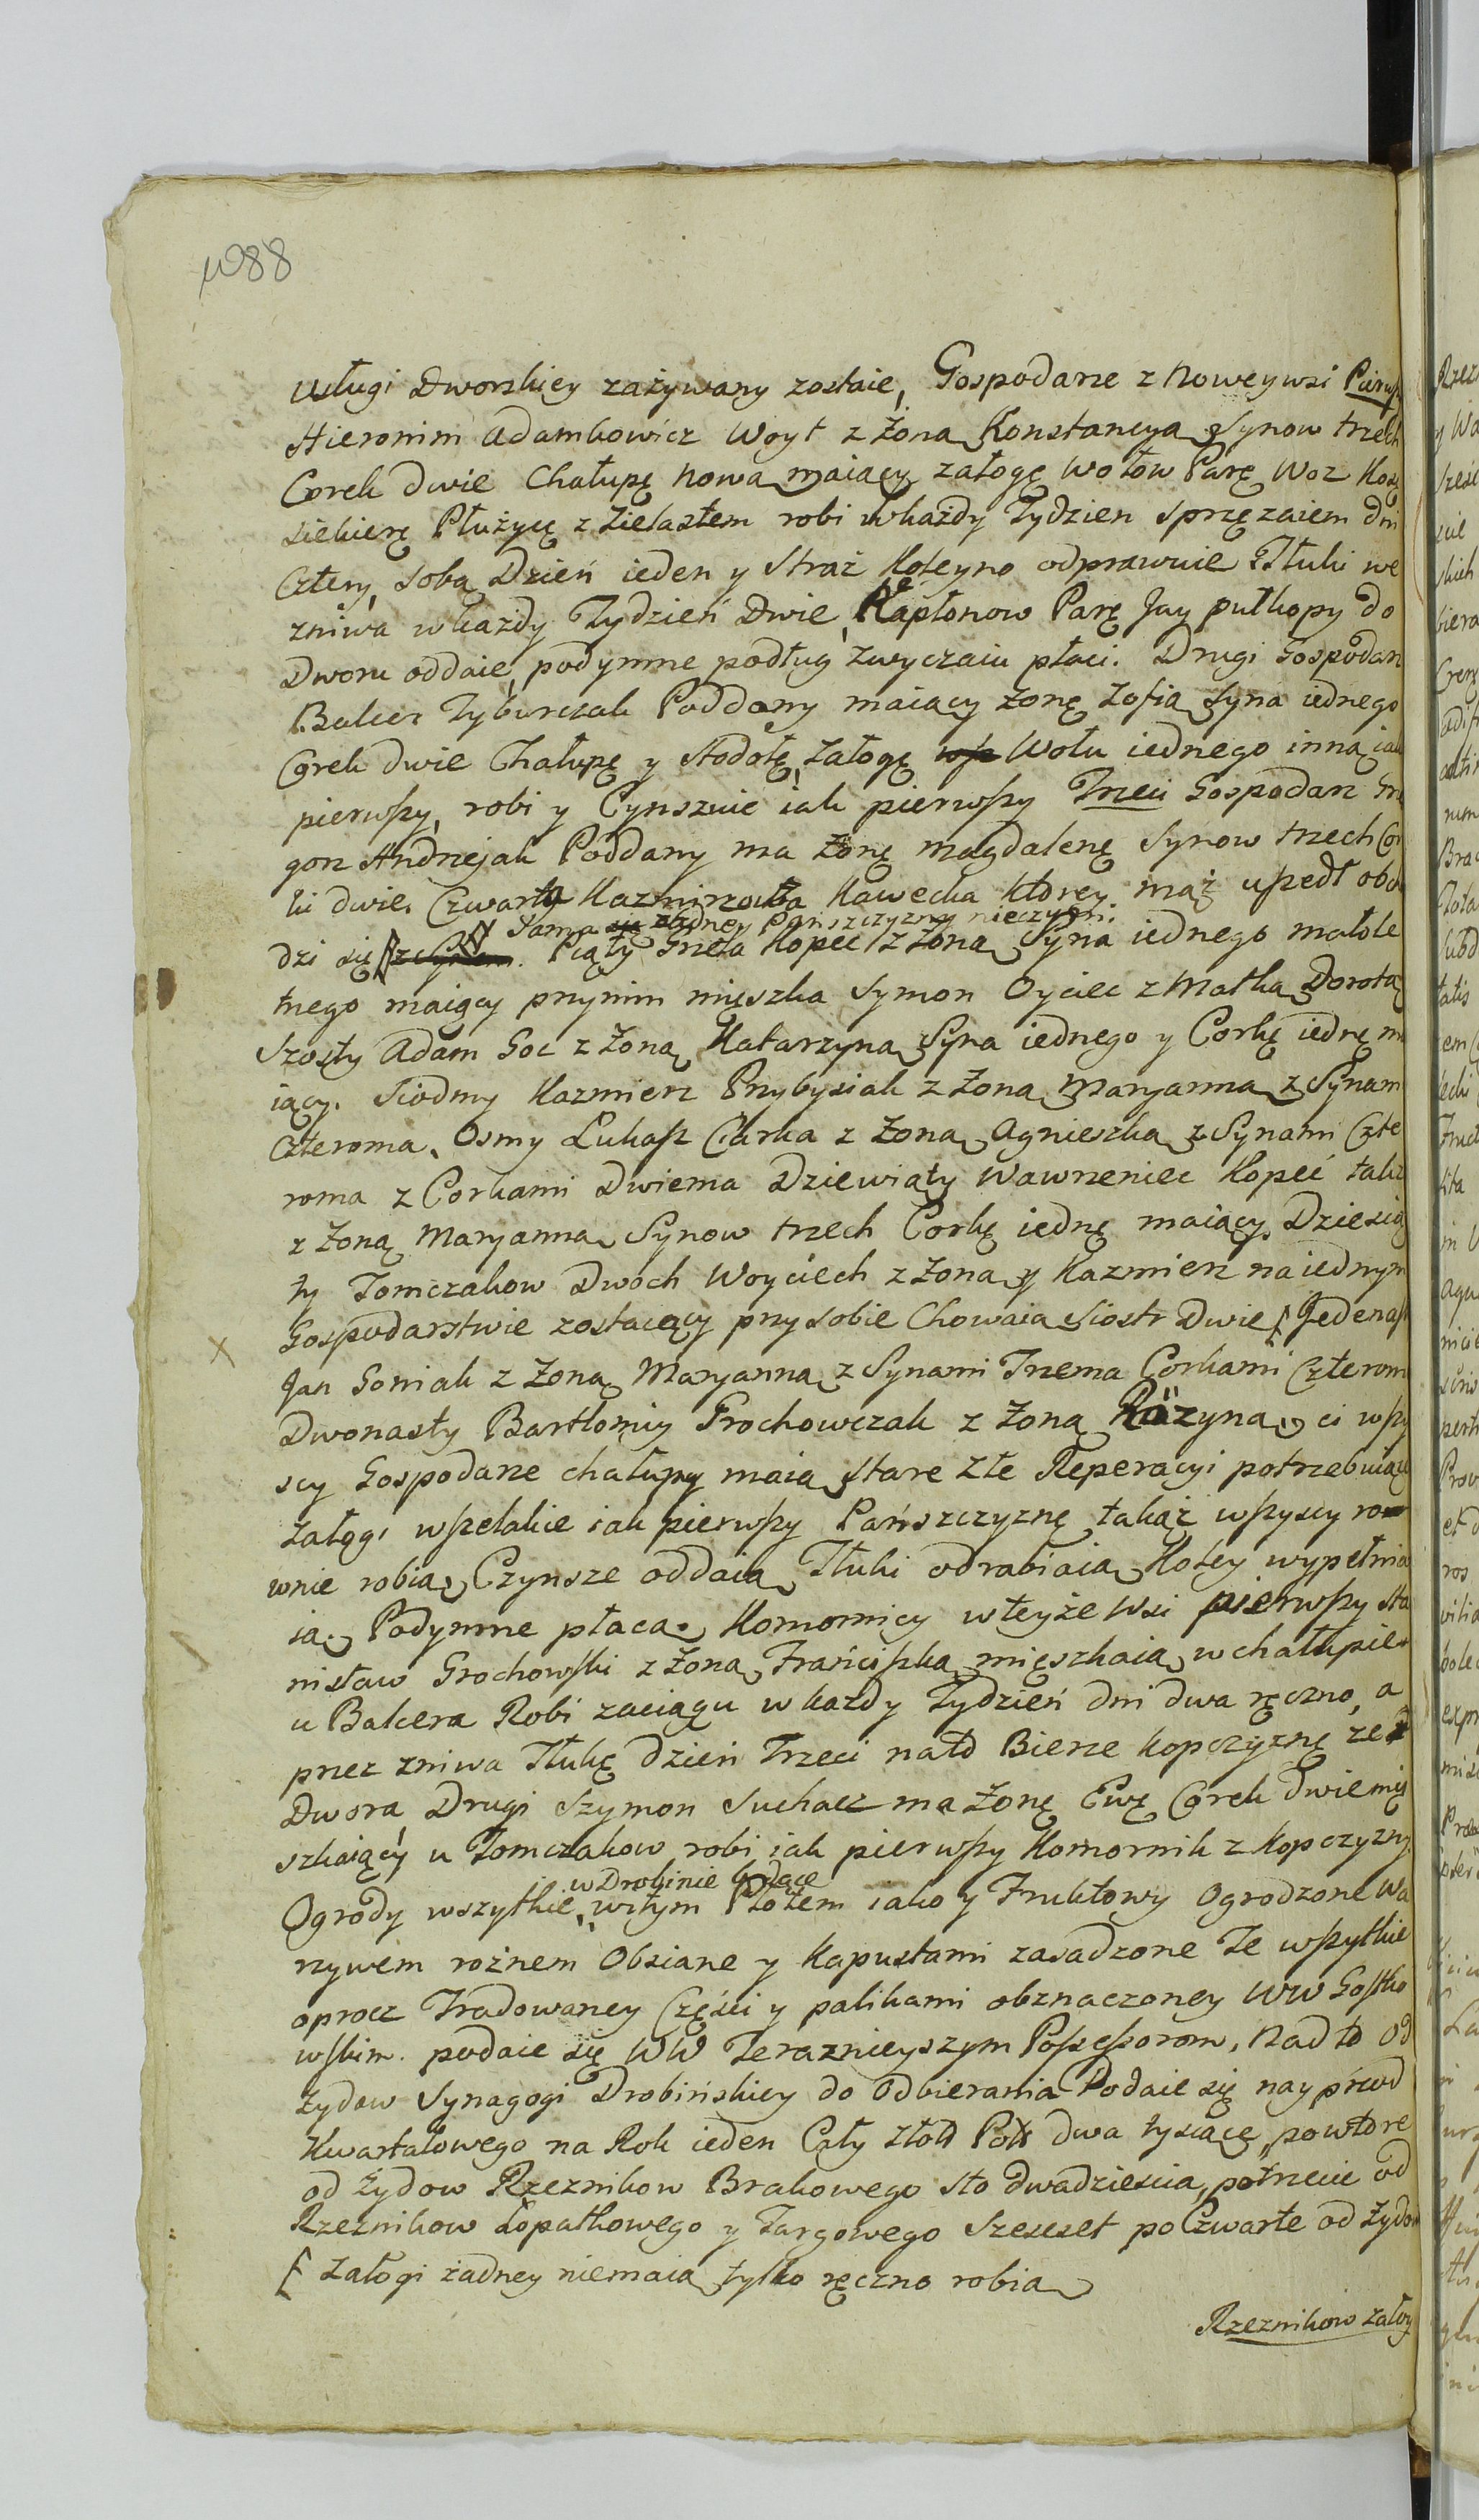 1088
usługi Dworskiey zażywany zostaie, Gospodarze z Noweywsi Pierwsz
Hieronim Adamkowicz Woyt z Żoną Konstancyą Synow trzech
Corek dwie Chałupę nową maiący załogę Wołow Parę Woz Kosę
siekierę Płużycę z żelastem robi w każdy Tydzien sprzęzaiem dni
Cztery, sobą Dzień ieden y Straż Koleyno odprawuie Tłuki we
zniwa w każdy Tydzień Dwie, Kapłonow Parę Jay pułkopy do
Dworu oddaie, podymne podług zwyczaiu płaci. Drugi Gospodarz
Balcer Tyburczak Poddany maiący żonę Zofią Syna iednego
Corek dwie Chałupę y Stodołę, załogę Wołu iednego inną iak
pierwszy, robi y Cynszuie iak pierwszy Trzeci Gospodarz Grze
gorz Andrzejak Poddany ma żonę Magdalenę Synow trzech Cor
ki dwie. Czwarta Kazmirzowa Kawecka Ktorey mąż uszedł obcho
Sama żadney Pańszczyzny nieczyni.
dzi się Piąty Gneła Kopec z Żoną Syna iednego małole
tnego maiący przynim mięszka Symon Oyciec z Matką Dorotą
Szosty Adam Goc z Żoną Katarzyną Syna iednego y Corkę iednę ma
iący. Siodmy Kazmierz Przybysiak z Żoną Maryanną z Synami
Czteroma. Osmy Łukasz Ciarka z Żoną Agnieszką z Synami Czte
roma z Corkami Dwiema Dziewiąty Wawrzeniec Kopeć także
z Żoną Maryanną Synow trzech Corkę iednę maiący, Dziesią
ty Tomczakow Dwoch Woyciech z Żoną y Kazmierz na iednym
Gospodarstwie zostaiący przy sobie Chowaią Siostr Dwie Jedenast
Jan Goniak z Żoną Maryanną z Synami Trzema Corkami Czterom
Dwonasty Bartłomiy Grochowczak z Żoną Rozyną, ci wszy
scy Gospodarze chałupy maią stare złe Reperacyi potrzebuiące
załogi wszelakie iak pierwszy Pańszczyznę takąż wszyscy ro
wnie robią, Czynsze oddaią Tłuki odrabiaią Koley wypełnia
ią. Podymne płacą. Komornicy w teyże Wsi pierwszy Sta
nisław Grochowski z Żoną Franciszką mięszkaią w chałupie
u Balcera Robi zaciągu w każdy Tydzień dni dwa ręczno, a
przez zniwa Tłukę dzień Trzeci nadto Bierze kopczyznę ze
Dwora Drugi Szymon Suchacz ma Żonę Ewę Corek dwie mię
szkaiący u Tomczakow robi iak pierwszy Komornik z kopczyzny
w Drobinie będące
Ogrody wszytkie witym Płotem iako y Fruktowy Ogrodzone Wa
rzywem roznem Obsiane y Kapustami zasadzone Te wszytkie
oprocz Tradowaney Części y palikami obznaczoney WW Gostko
wskim. podaie się WW Teraznieyszym Possessorom, Nad to Od
żydow Synagogi Drobińskiey do Odbierania Podaie się nayprzod
Kwartałowego na Rok ieden Cały Złott Pols dwa tysiące, powtore
od żydow Rzeznikow Brakowego sto dwadziescia, potrzecie od
Rzeznikow Łopatkowego y Targowego szescset po Czwarte od żydow
załogi żadney niemaią tylko ręczno robią
Rzeznikow załoy